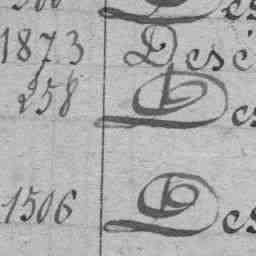 1873 Desé
258 Des
1506 Des